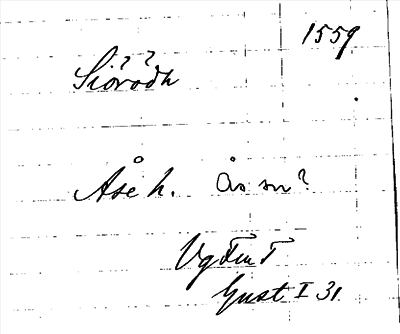 1559
? ?
Siörödh
Åse h. Ås sn?
VgFmT
Gust I 31.